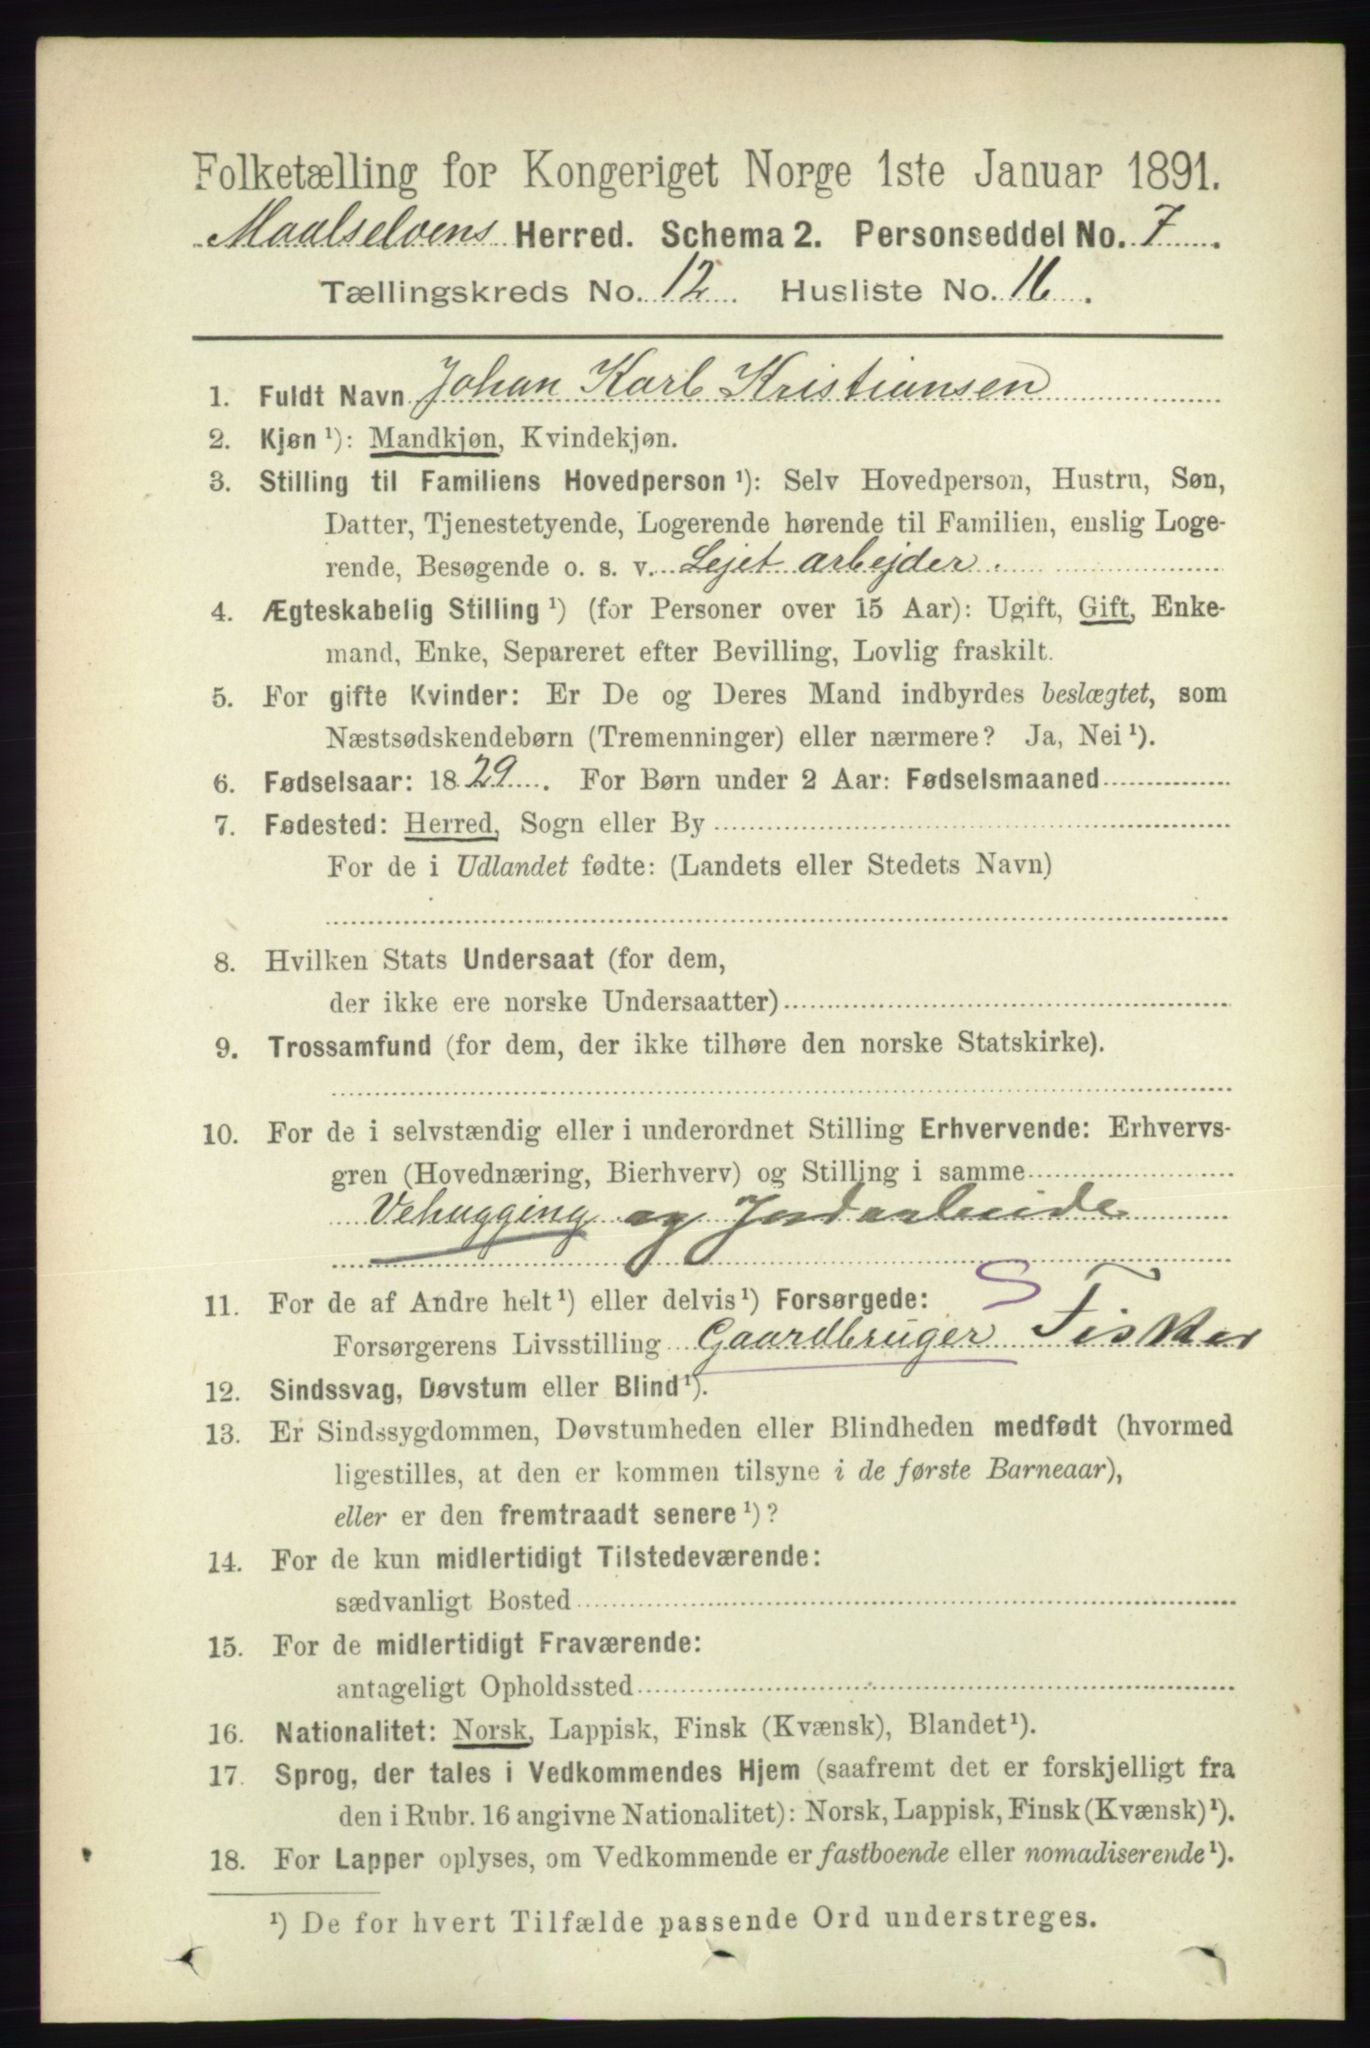 Folketælling for Kongeriget Norge 1ste Januar 1891.
Maalselvens Herred. Schema 2. Personseddel No. 7.
Tællingskreds No. 12 Husliste No. 16.
1. Fuldt Navn Johan Karl Kristiansen
2. Kjøn ¹): Mandkjøn, Kvindekjøn.
3. Stilling til Familiens Hovedperson ¹): Selv Hovedperson, Hustru, Søn,
Datter, Tjenestetyende, Logerende hørende til Familien, enslig Loge-
rende, Besøgende o. s. v. Lejet arbejder.
4. Ægteskabelig Stilling ¹) (for Personer over 15 Aar): Ugift, Gift, Enke-
mand, Enke, Separeret efter Bevilling, Lovlig fraskilt.
5. For gifte Kvinder: Er De og Deres Mand indbyrdes beslægtet, som
Næstsødskendebørn (Tremenninger) eller nærmere? Ja, Nei ¹).
6. Fødselsaar: 1829. For Børn under 2 Aar: Fødselsmaaned
7. Fødested: Herred, Sogn eller By
For de i Udlandet fødte: (Landets eller Stedets Navn)
8. Hvilken Stats Undersaat (for dem,
der ikke ere norske Undersaatter)
9. Trossamfund (for dem, der ikke tilhøre den norske Statskirke).
10. For de i selvstændig eller i underordnet Stilling Erhvervende: Erhvervs-
gren (Hovednæring, Bierhverv) og Stilling i samme
Vehugging og Jordarbeide
11. For de af Andre helt ¹) eller delvis ¹) Forsørgede: S
Forsørgerens Livsstilling Gaardbruger Fisker
12. Sindssvag, Døvstum eller Blind ¹).
13. Er Sindssygdommen, Døvstumheden eller Blindheden medfødt (hvormed
ligestilles, at den er kommen tilsyne i de første Barneaar),
eller er den fremtraadt senere ¹)?
14. For de kun midlertidigt Tilstedeværende:
sædvanligt Bosted
15. For de midlertidigt Fraværende:
antageligt Opholdssted
16. Nationalitet: Norsk, Lappisk, Finsk (Kvænsk), Blandet ¹).
17. Sprog, der tales i Vedkommendes Hjem (saafremt det er forskjelligt fra
den i Rubr. 16 angivne Nationalitet): Norsk, Lappisk, Finsk (Kvænsk) ¹).
18. For Lapper oplyses, om Vedkommende er fastboende eller nomadiserende ¹).
¹) De for hvert Tilfælde passende Ord understreges.